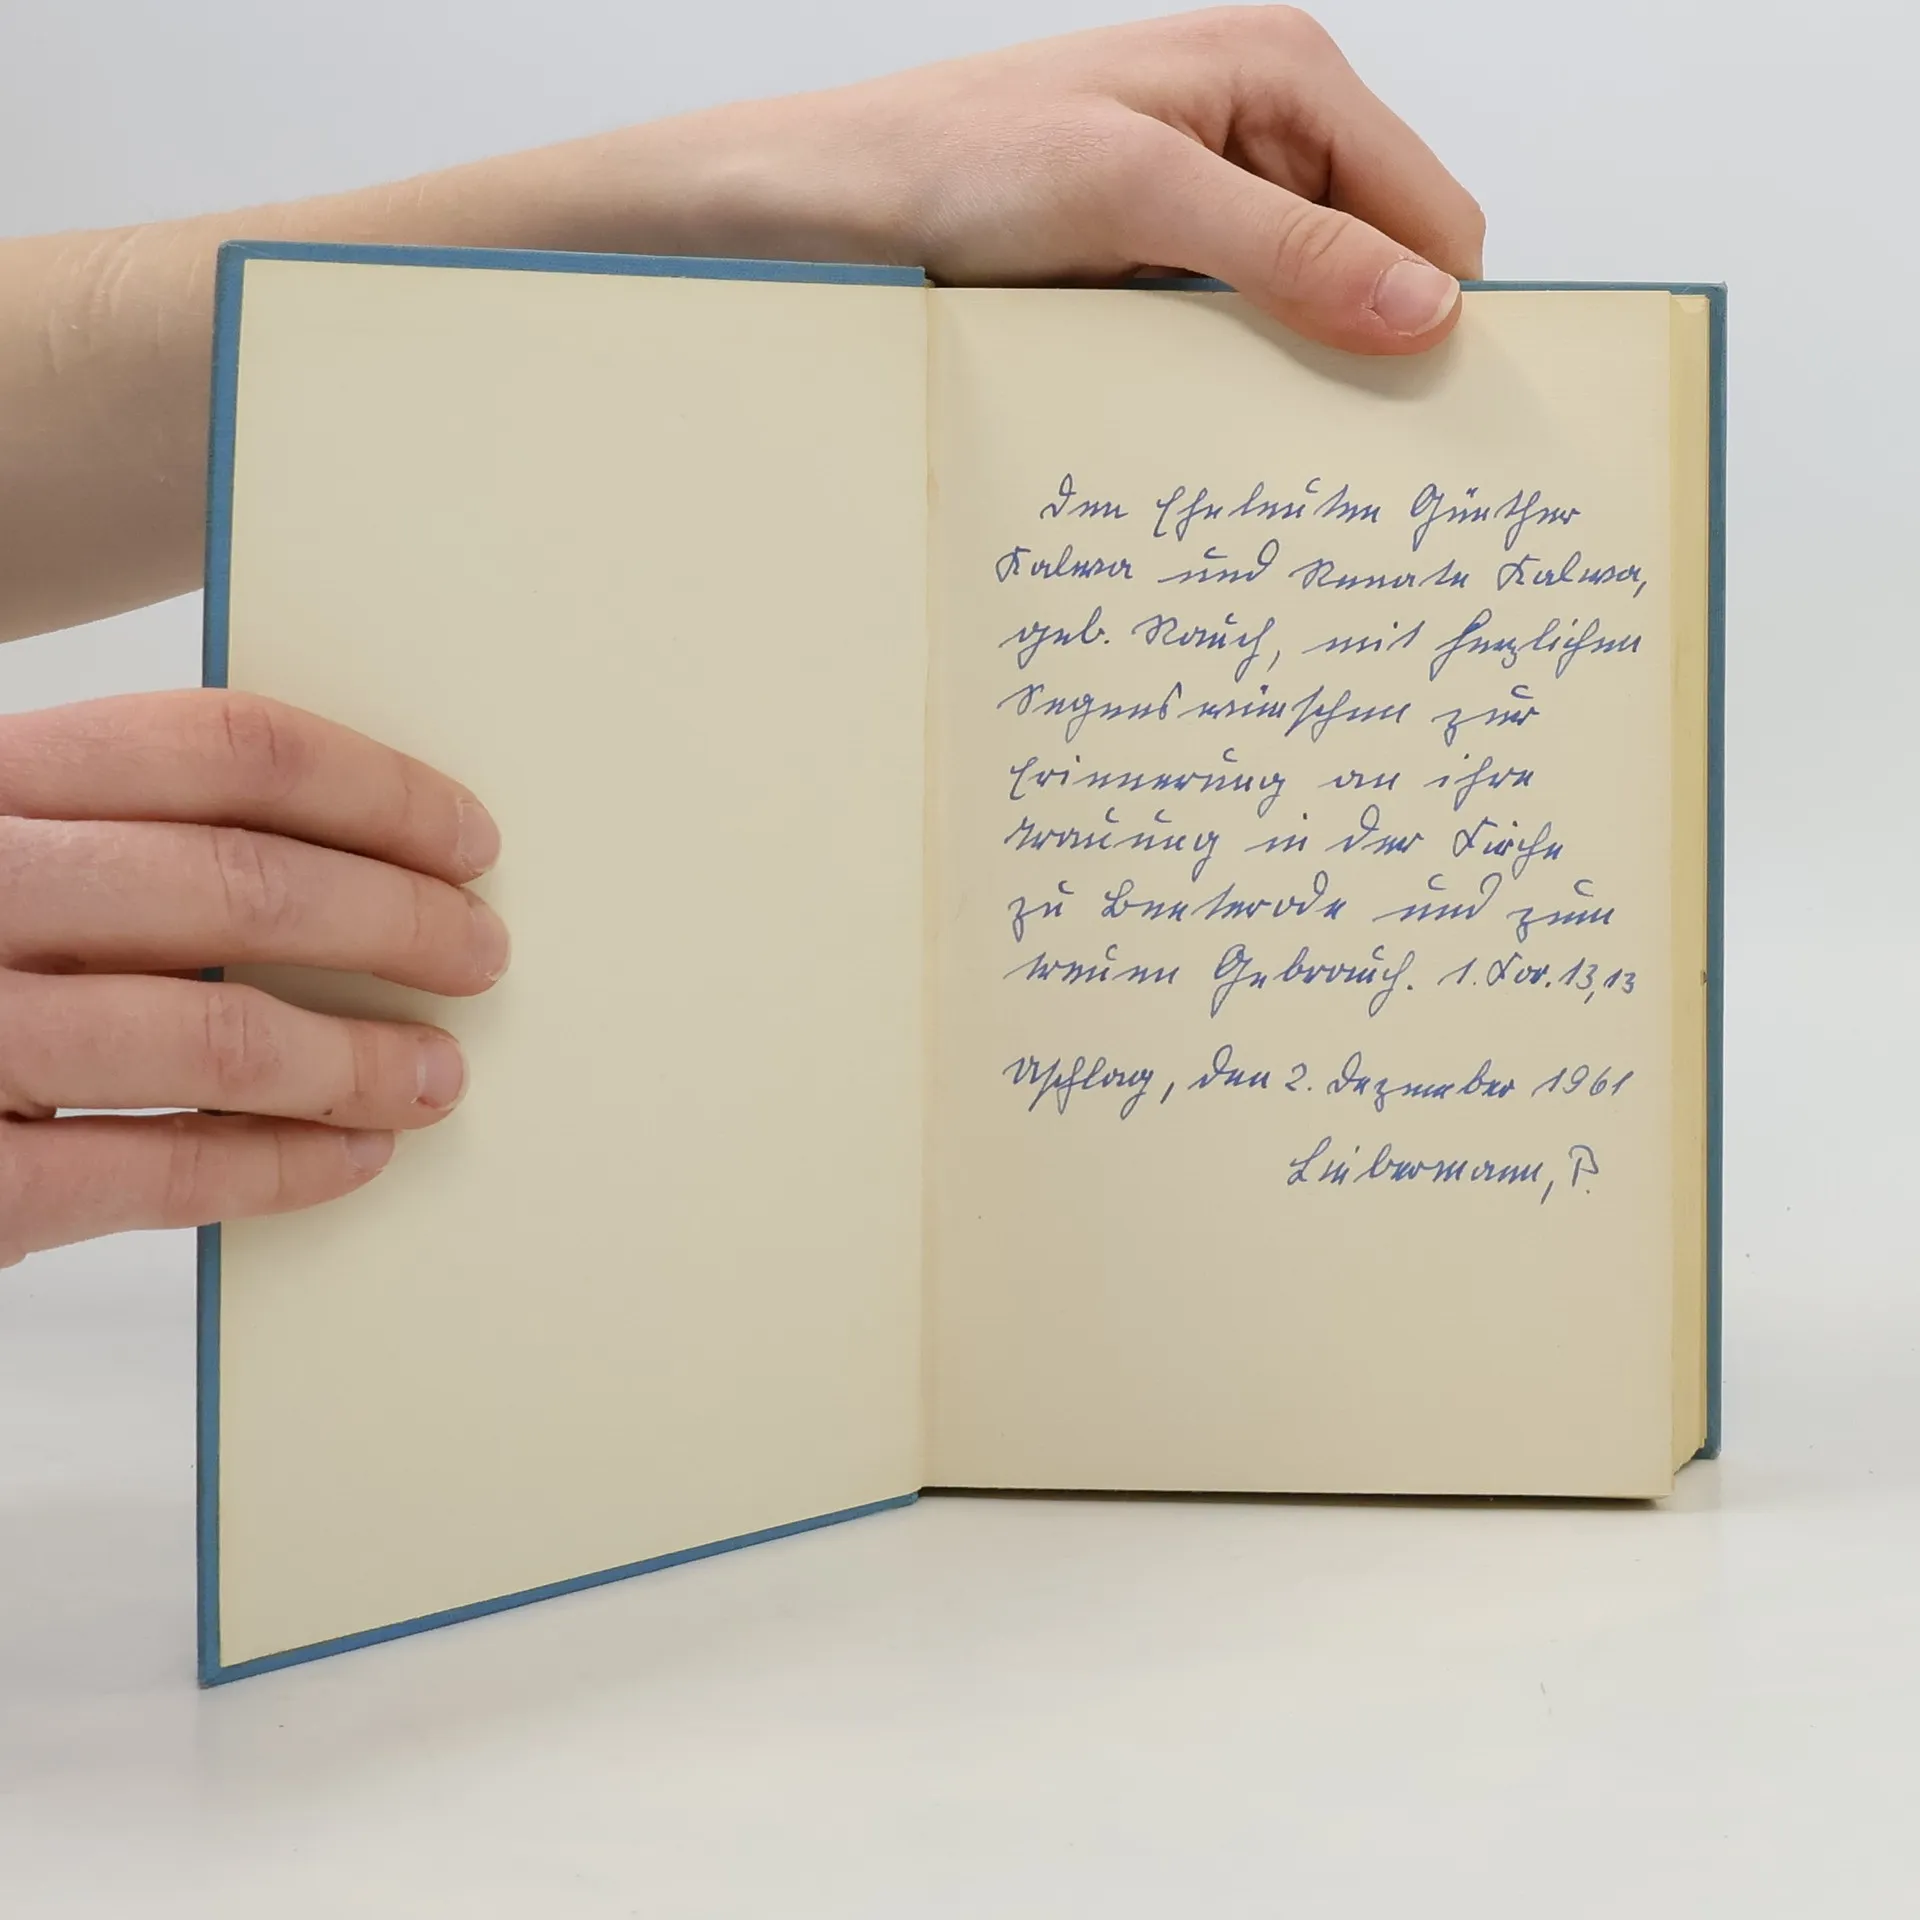 Den Eheleuten Günther
Kalwa und Renate Kalwa,
geb. Rauch, mit herzlichen
Segenswünschen zur
Erinnerung an ihre
Trauung in der Kirche
zu Benterode und zum
treuen Gebrauch. 1. Kor. 13,13
Uschlag, den 2. Dezember 1961
Liebermann, P.